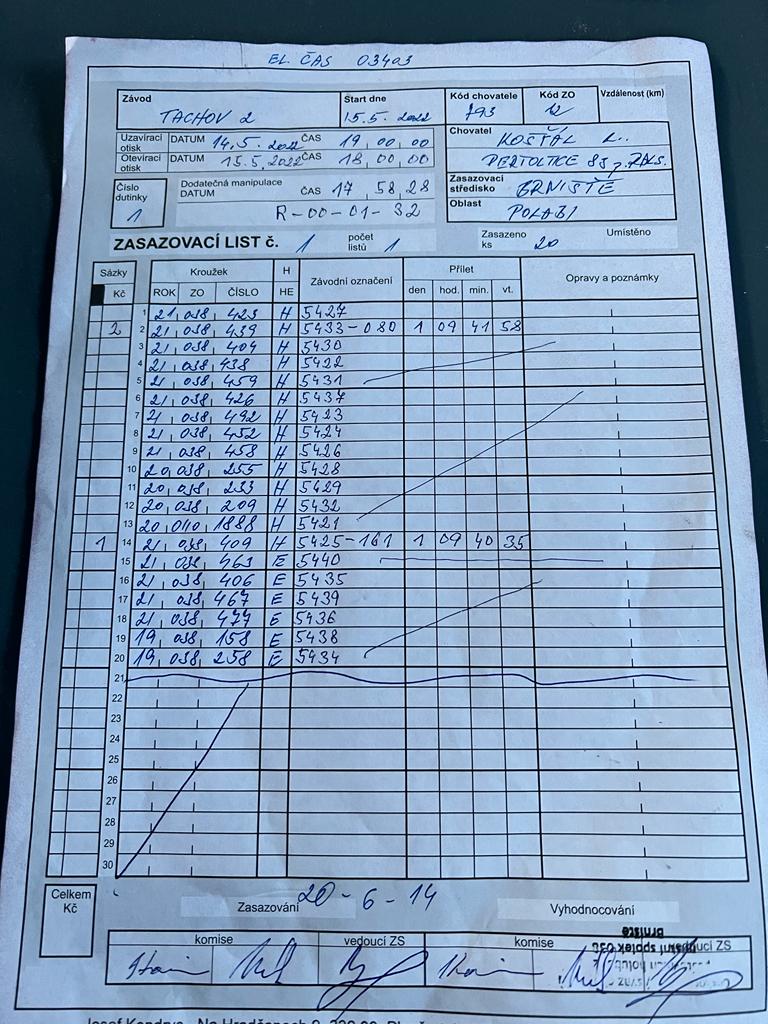 EL. ČAS 03403
Závod TACHOV 2 Start dne 15.5.2022 Kód chovatele 793 Kód ZO 12 Vzdálenost (km)
Uzavírací otisk DATUM 14.5.2022 ČAS 19 00 00
Otevírací otisk DATUM 15.5.2022 ČAS 18 00 00
Chovatel KOŠŤÁL L..
PERTOLTICE 85 p. RALS.
Číslo dutinky 1
Dodatečná manipulace DATUM ČAS 17 58 28
R-00-01-32
Zasazovací středisko BRNIŠTĚ
Oblast POLABÍ
ZASAZOVACÍ LIST č. 1 počet listů 1 Zasazeno ks 20 Umístěno
Sázky Kroužek H Závodní označení Přílet Opravy a poznámky
Kč ROK ZO ČÍSLO HE den hod. min. vt.
1 21 038 423 H 5427
2 2 21 038 439 H 5433-080 1 09 41 58
3 21 038 404 H 5430
4 21 038 438 H 5422
5 21 038 459 H 5431
6 21 038 426 H 5437
7 21 038 492 H 5423
8 21 038 452 H 5424
9 21 038 458 H 5426
10 20 038 255 H 5428
11 20 038 233 H 5429
12 20 038 209 H 5432
13 20 040 1888 H 5421
1 14 21 038 409 H 5425-161 1 09 40 35
15 21 038 463 E 5440
16 21 038 406 E 5435
17 21 038 467 E 5439
18 21 038 477 E 5436
19 19 038 158 E 5438
20 19 038 258 E 5434
21
22
23
24
25
26
27
28
29
30
Celkem Kč
Zasazování 20-6-14 Vyhodnocování
komise vedoucí ZS komise vedoucí ZS
Brniště